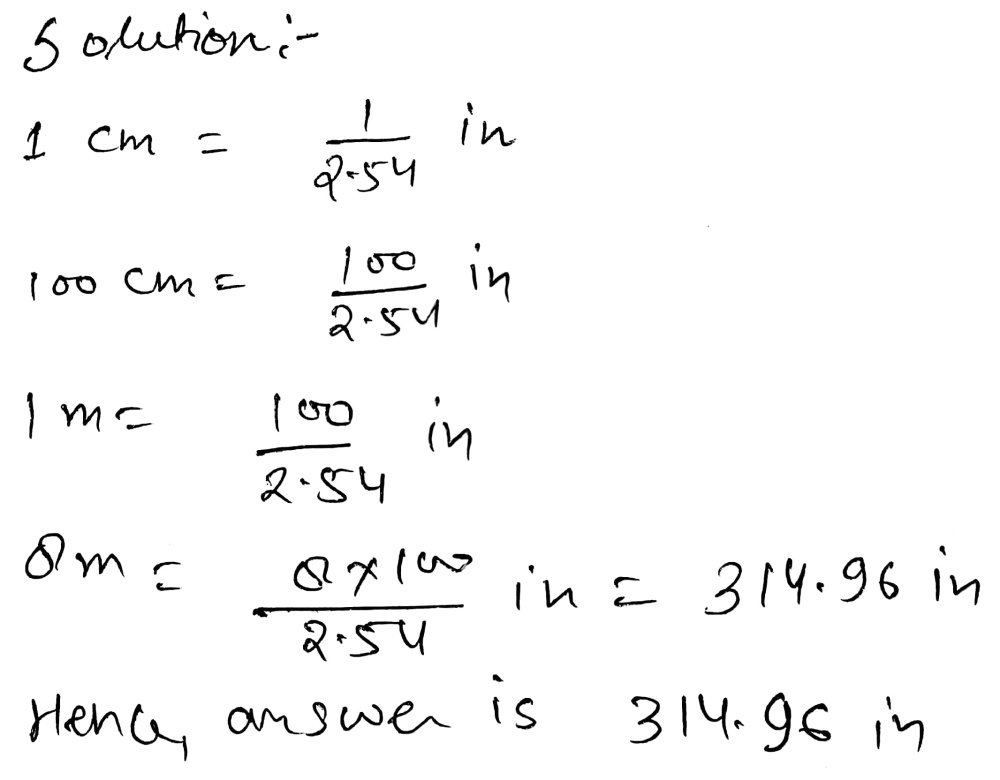 Solution:-
1 cm = 1/2.54 in
100 cm = 100/2.54 in
1 m = 100/2.54 in
8m = 8×100/2.54 in = 314.96 in
Hence, answer is 314.96 in